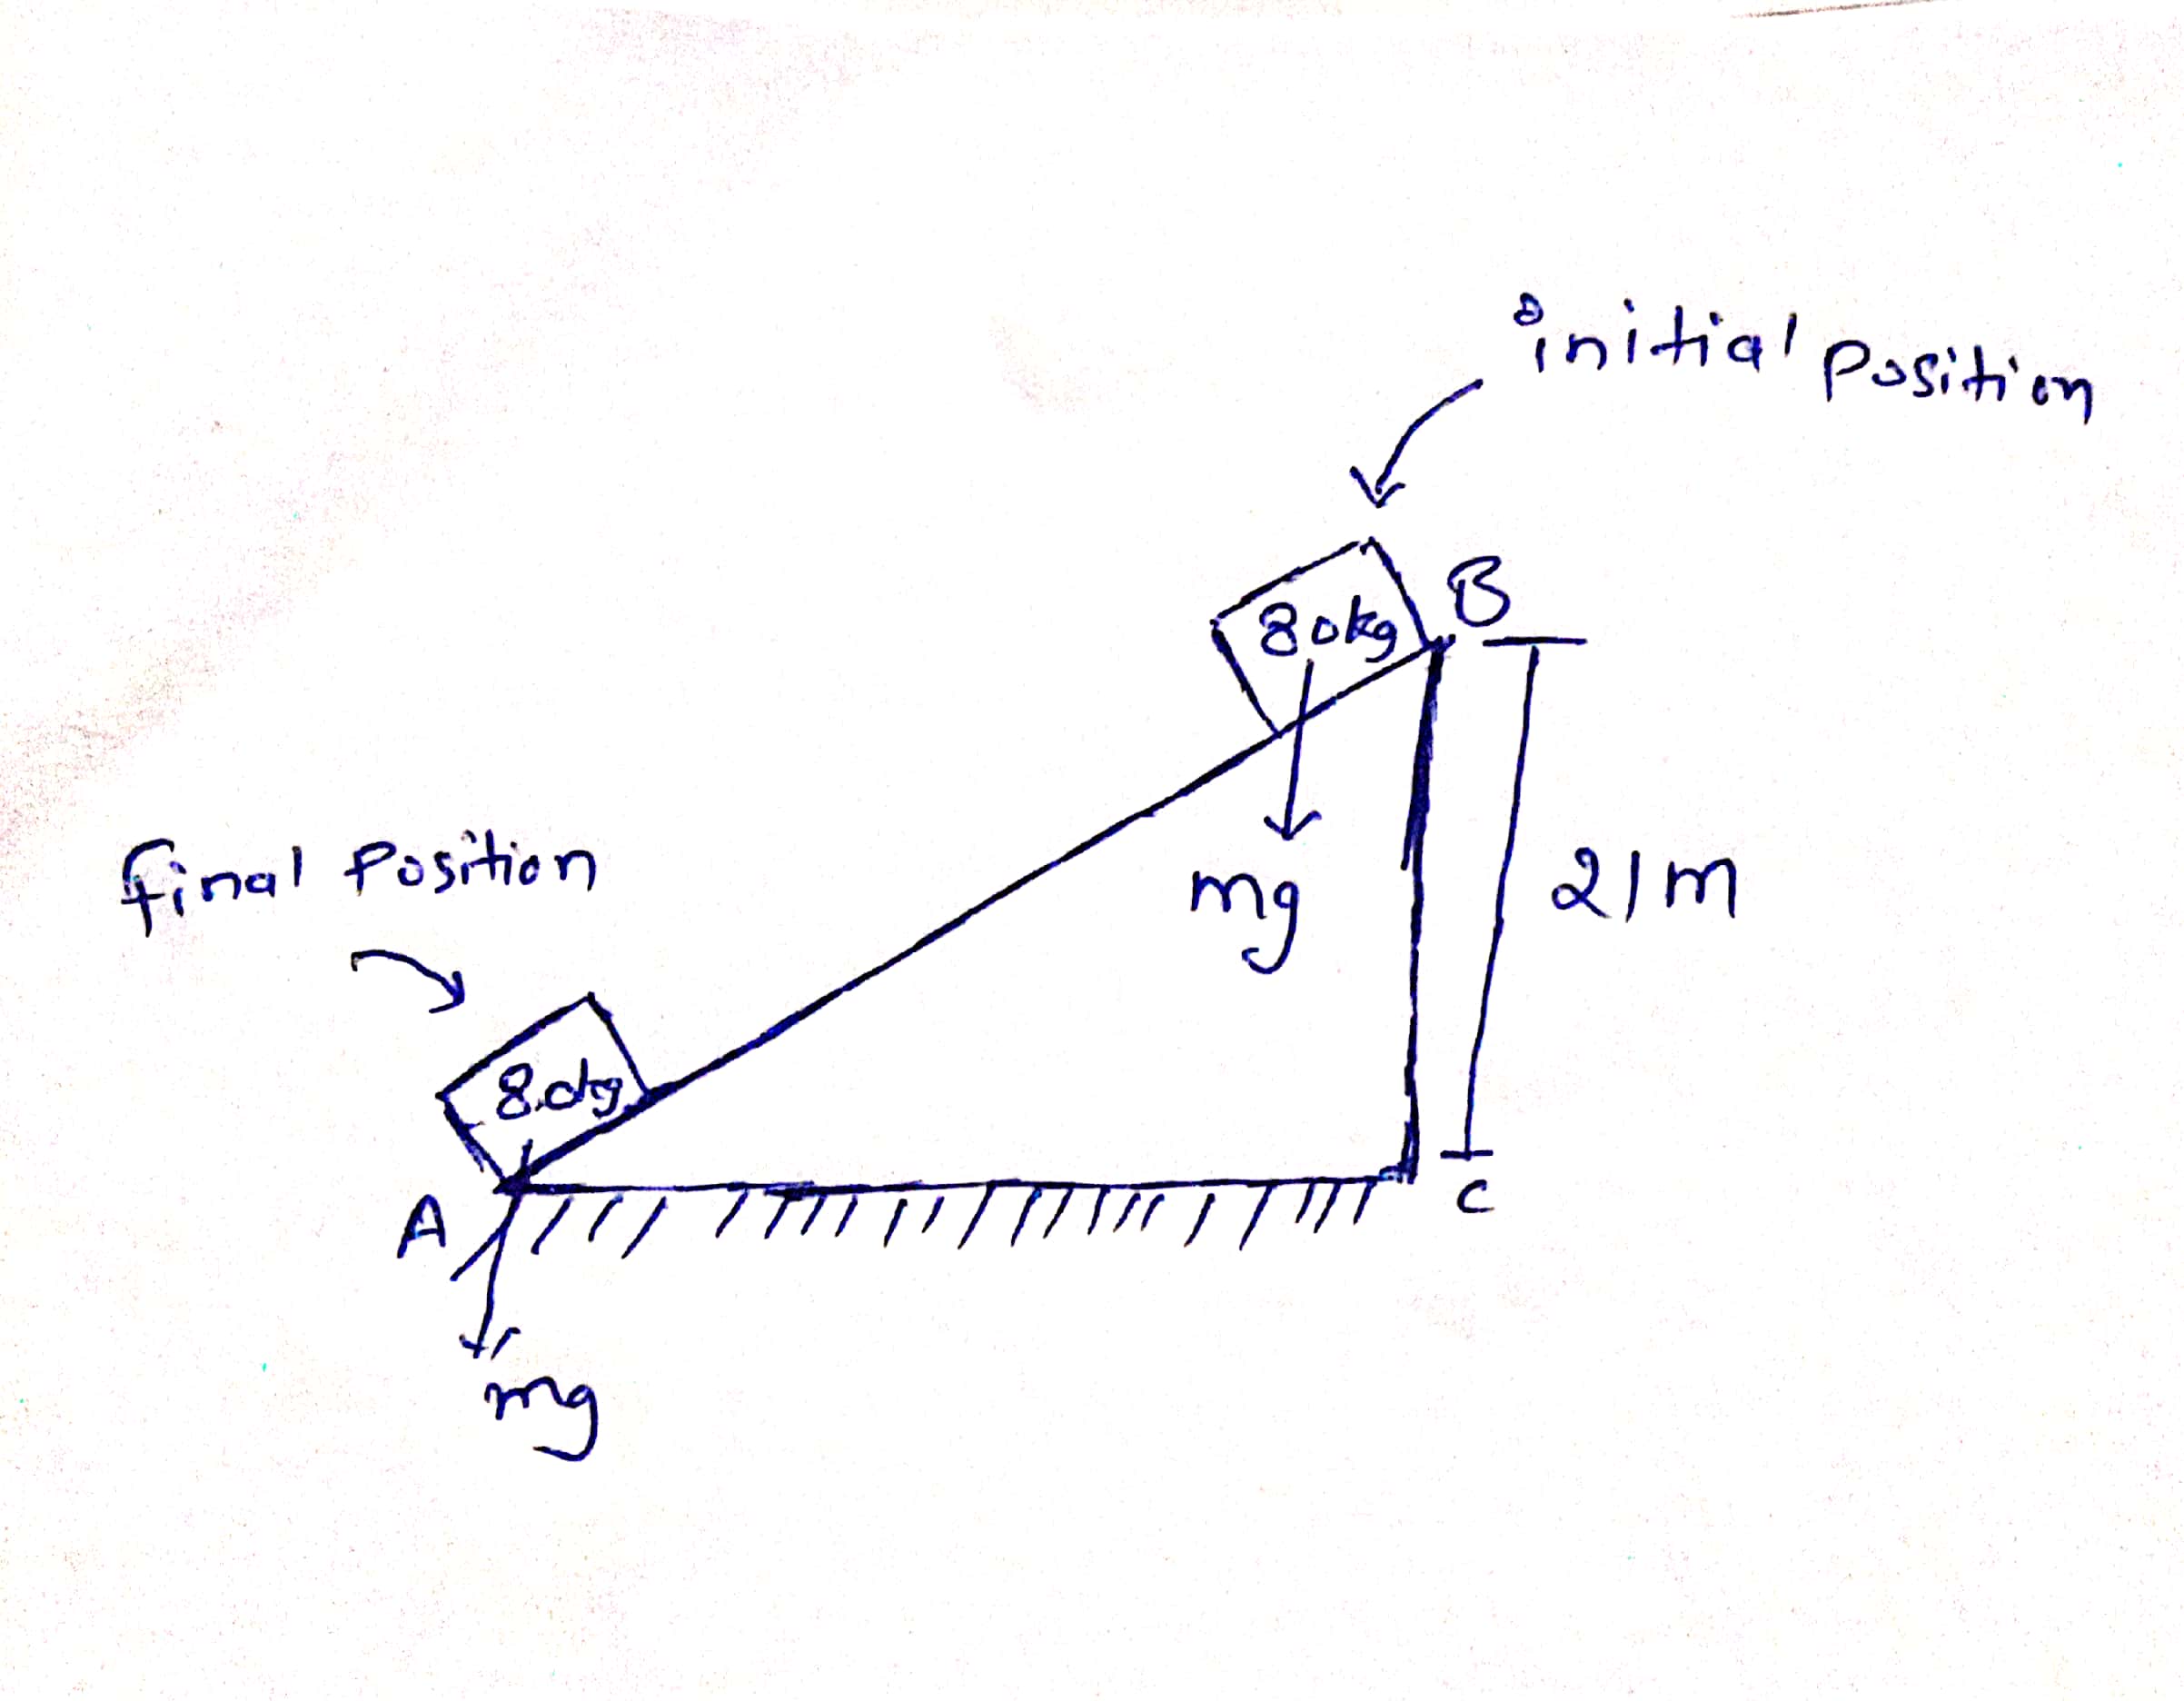 initial position
B
80kg
mg
21m
final position
8.0kg
A
C
mg